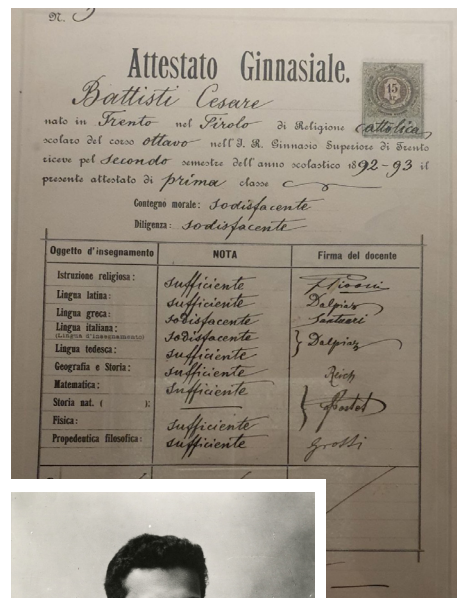 N. 3
Attestato Ginnasiale.
15
Battisti Cesare
nato in Trento nel Tirolo di Religione cattolica
scolaro del corso ottavo nell'I. R. Ginnasio Superiore di Trento
riceve pel secondo semestre dell'anno scolastico 1892-93 il
presente attestato di prima classe
Contegno morale: sodisfacente
Diligenza: sodisfacente
Oggetto d'insegnamento NOTA Firma del docente
Istruzione religiosa: sufficiente
Lingua latina: sufficiente Dalpiaz
Lingua greca: sodisfacente Santuari
Lingua italiana: sodisfacente Dalpiaz
(Lingua d'insegnamento)
Lingua tedesca: sufficiente
Geografia e Storia: sufficiente Reich
Matematica: sufficiente
Storia nat. ( ):
Fisica: sufficiente
Propedeutica filosofica: sufficiente Grossi